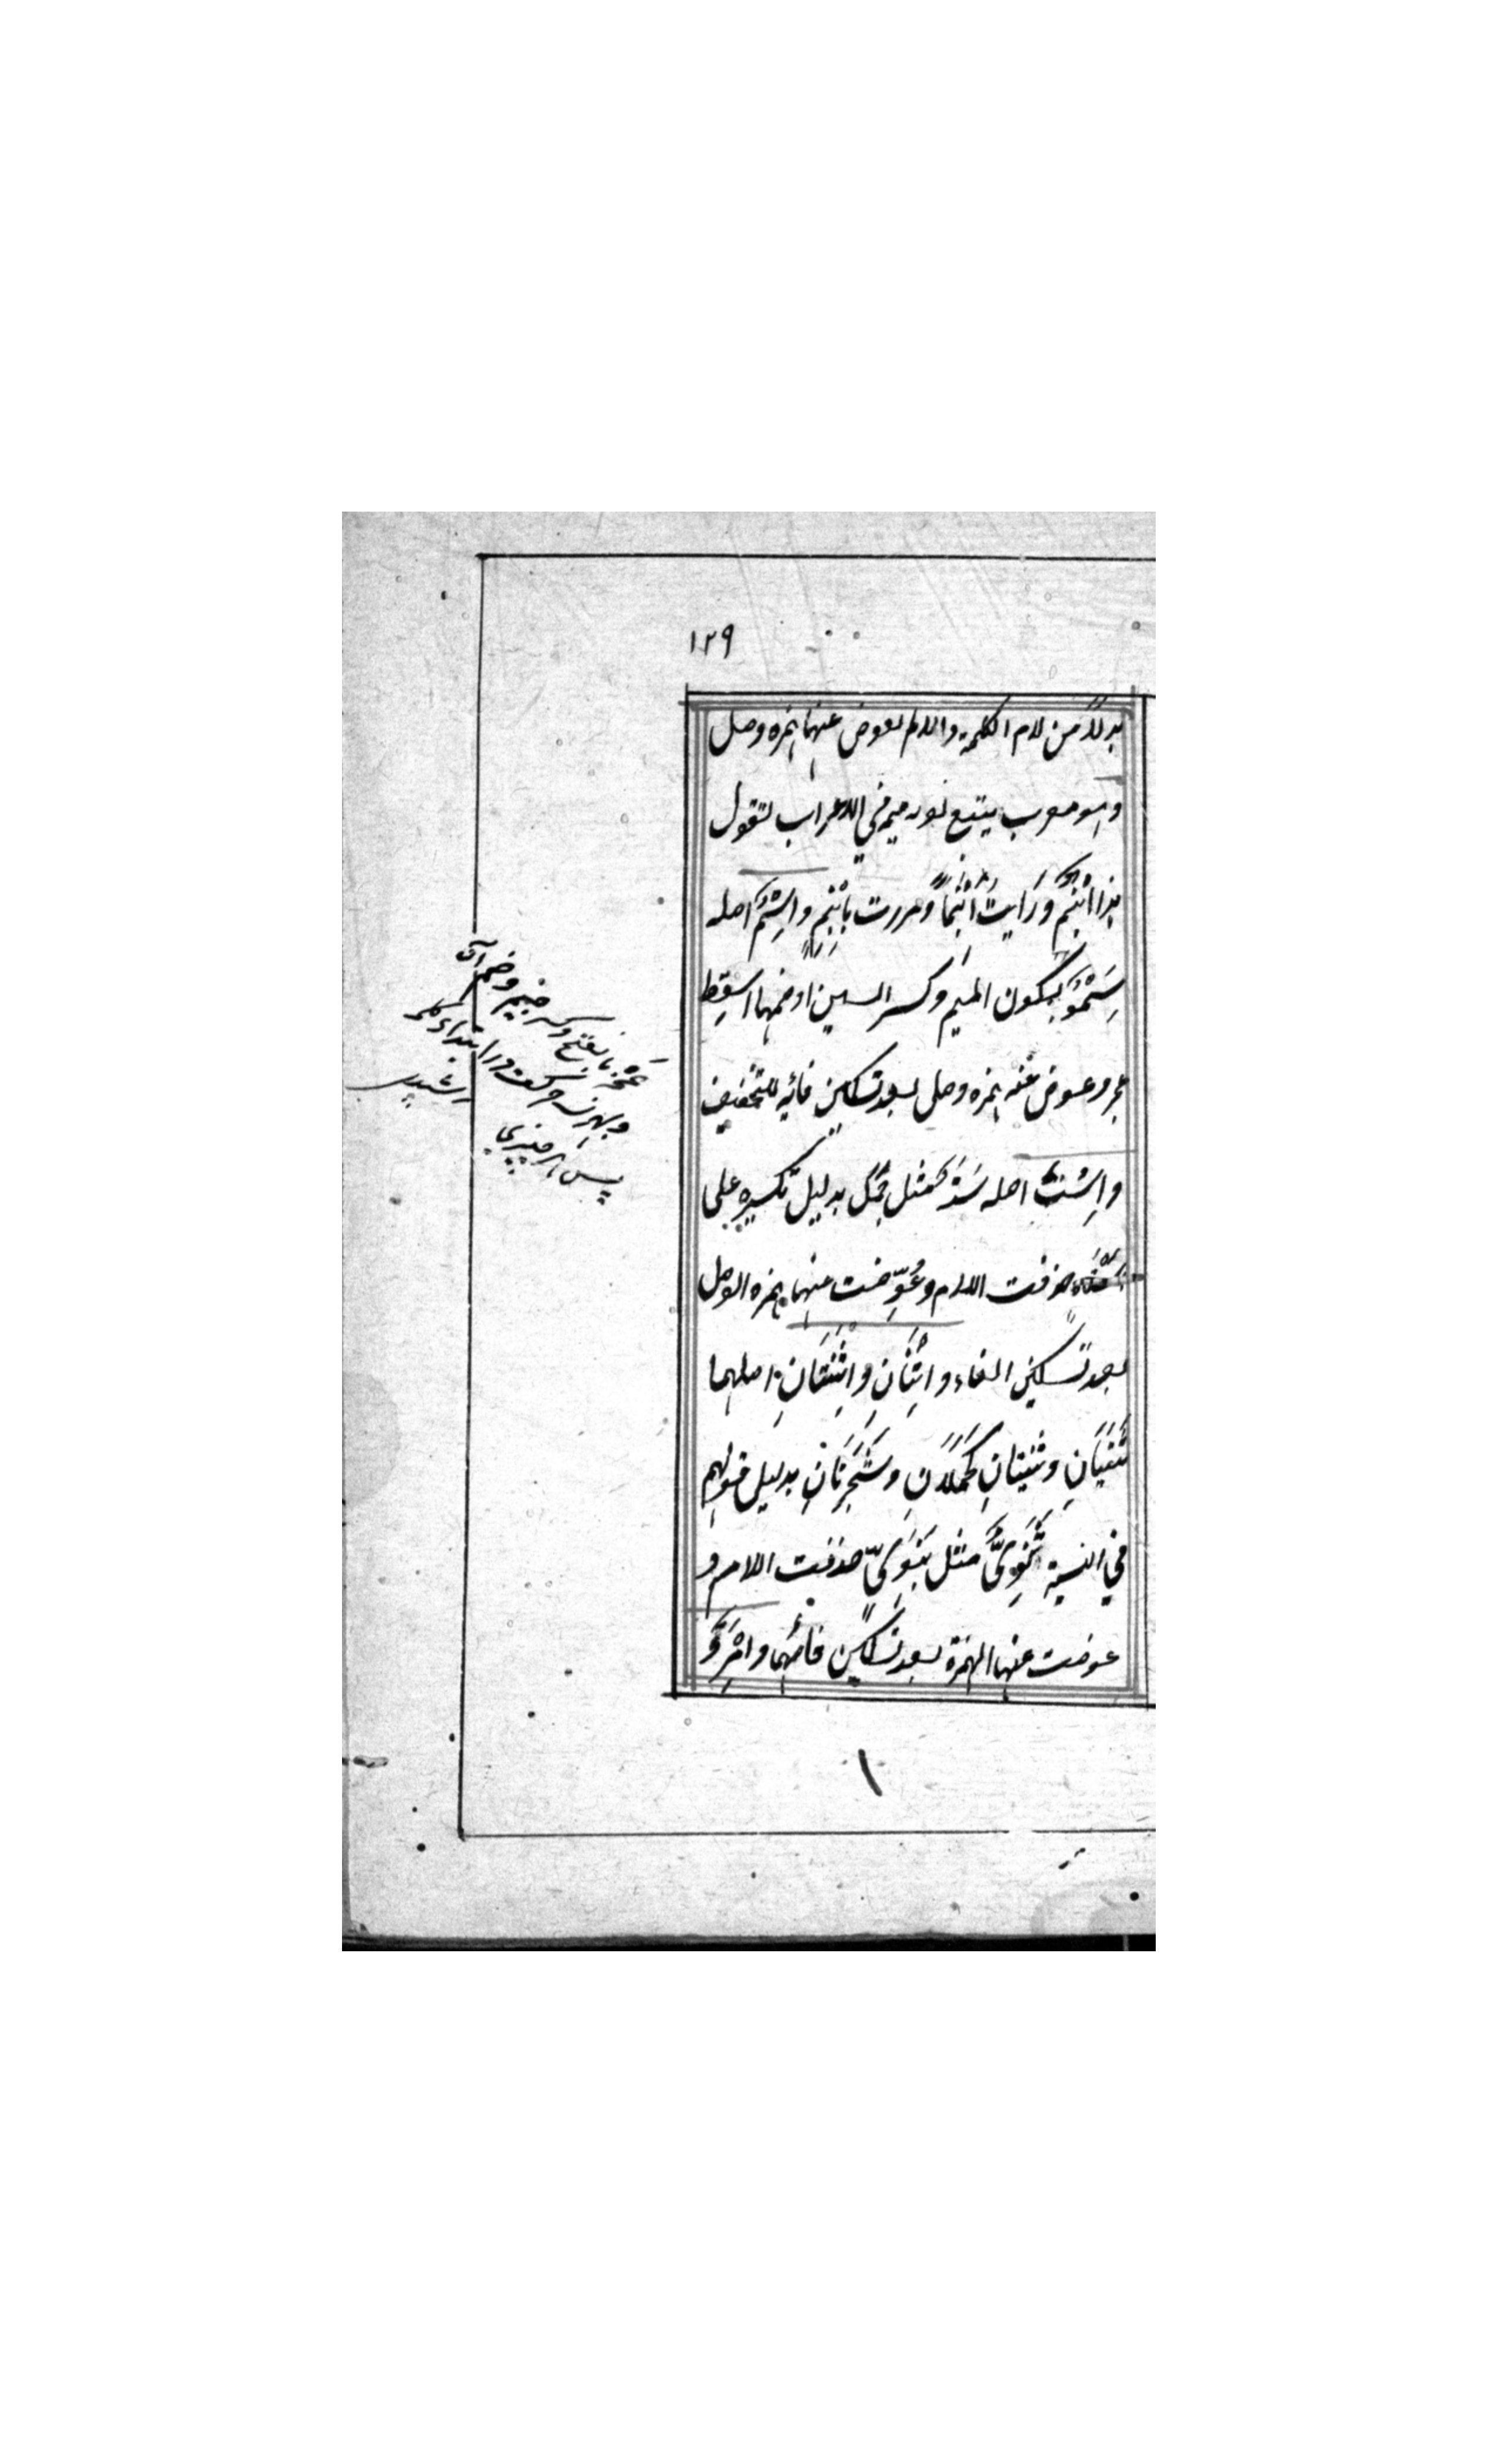 ١٢٩
بدلاً من لام الكلمة واللام لعوض عنها همزه وصل
وهو معرب يتبع نونه ميمه في الاعراب لتقول
هذا ابْنُمٌ ورَايتُ ابْنَماً ومررت بابْنِمٍ واِسْمٌ اصله
سِمْوٌ بسكون الميم وكسر السين او ضمها اسقط
عجز وعوض عنه همزه وصل بعد تسكين فائه للتخفيف
واِسْتٌ اصله سَتَهٌ كمثل جَمَل بدليل تكسيره على
اَسْتَاه حذفت اللام وعُوِّضت عنها همزه الوصل
بعد تسكين الفاء واثْنَانِ واثْنَتَانِ اصلهما
ثَنَيَانِ وثَنَيَتانِ كَجَمَلَانِ وشَجَرتَانِ بدليل قولهم
في النسبة ثَنَوِىٌّ مثل بَنَوِىٌّ حذفت اللام و
عوضت عنها الهمزة بعد تسكين فائهما وامْرَؤٌ
عَجْز بالفتح وكسر جيم وضم آن
وبهرسه حركت در ابتداء كلمه
پس هر چيزى